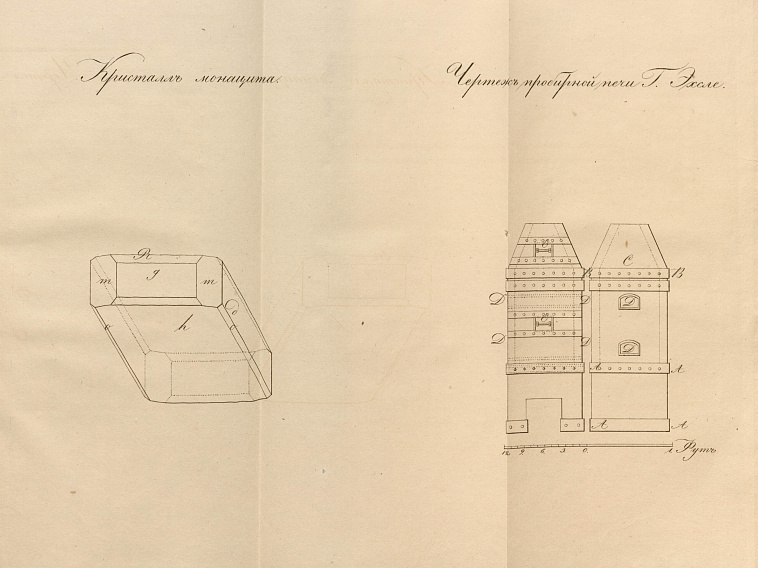 Кристаллъ монацита.
Чертежъ пробирной печи Г. Эхсле.
R
g
m m
d
e h
C
C
B B
D D
D
C
D D
D
A A
A A
12. 9. 6. 3. 0. 1. Футъ